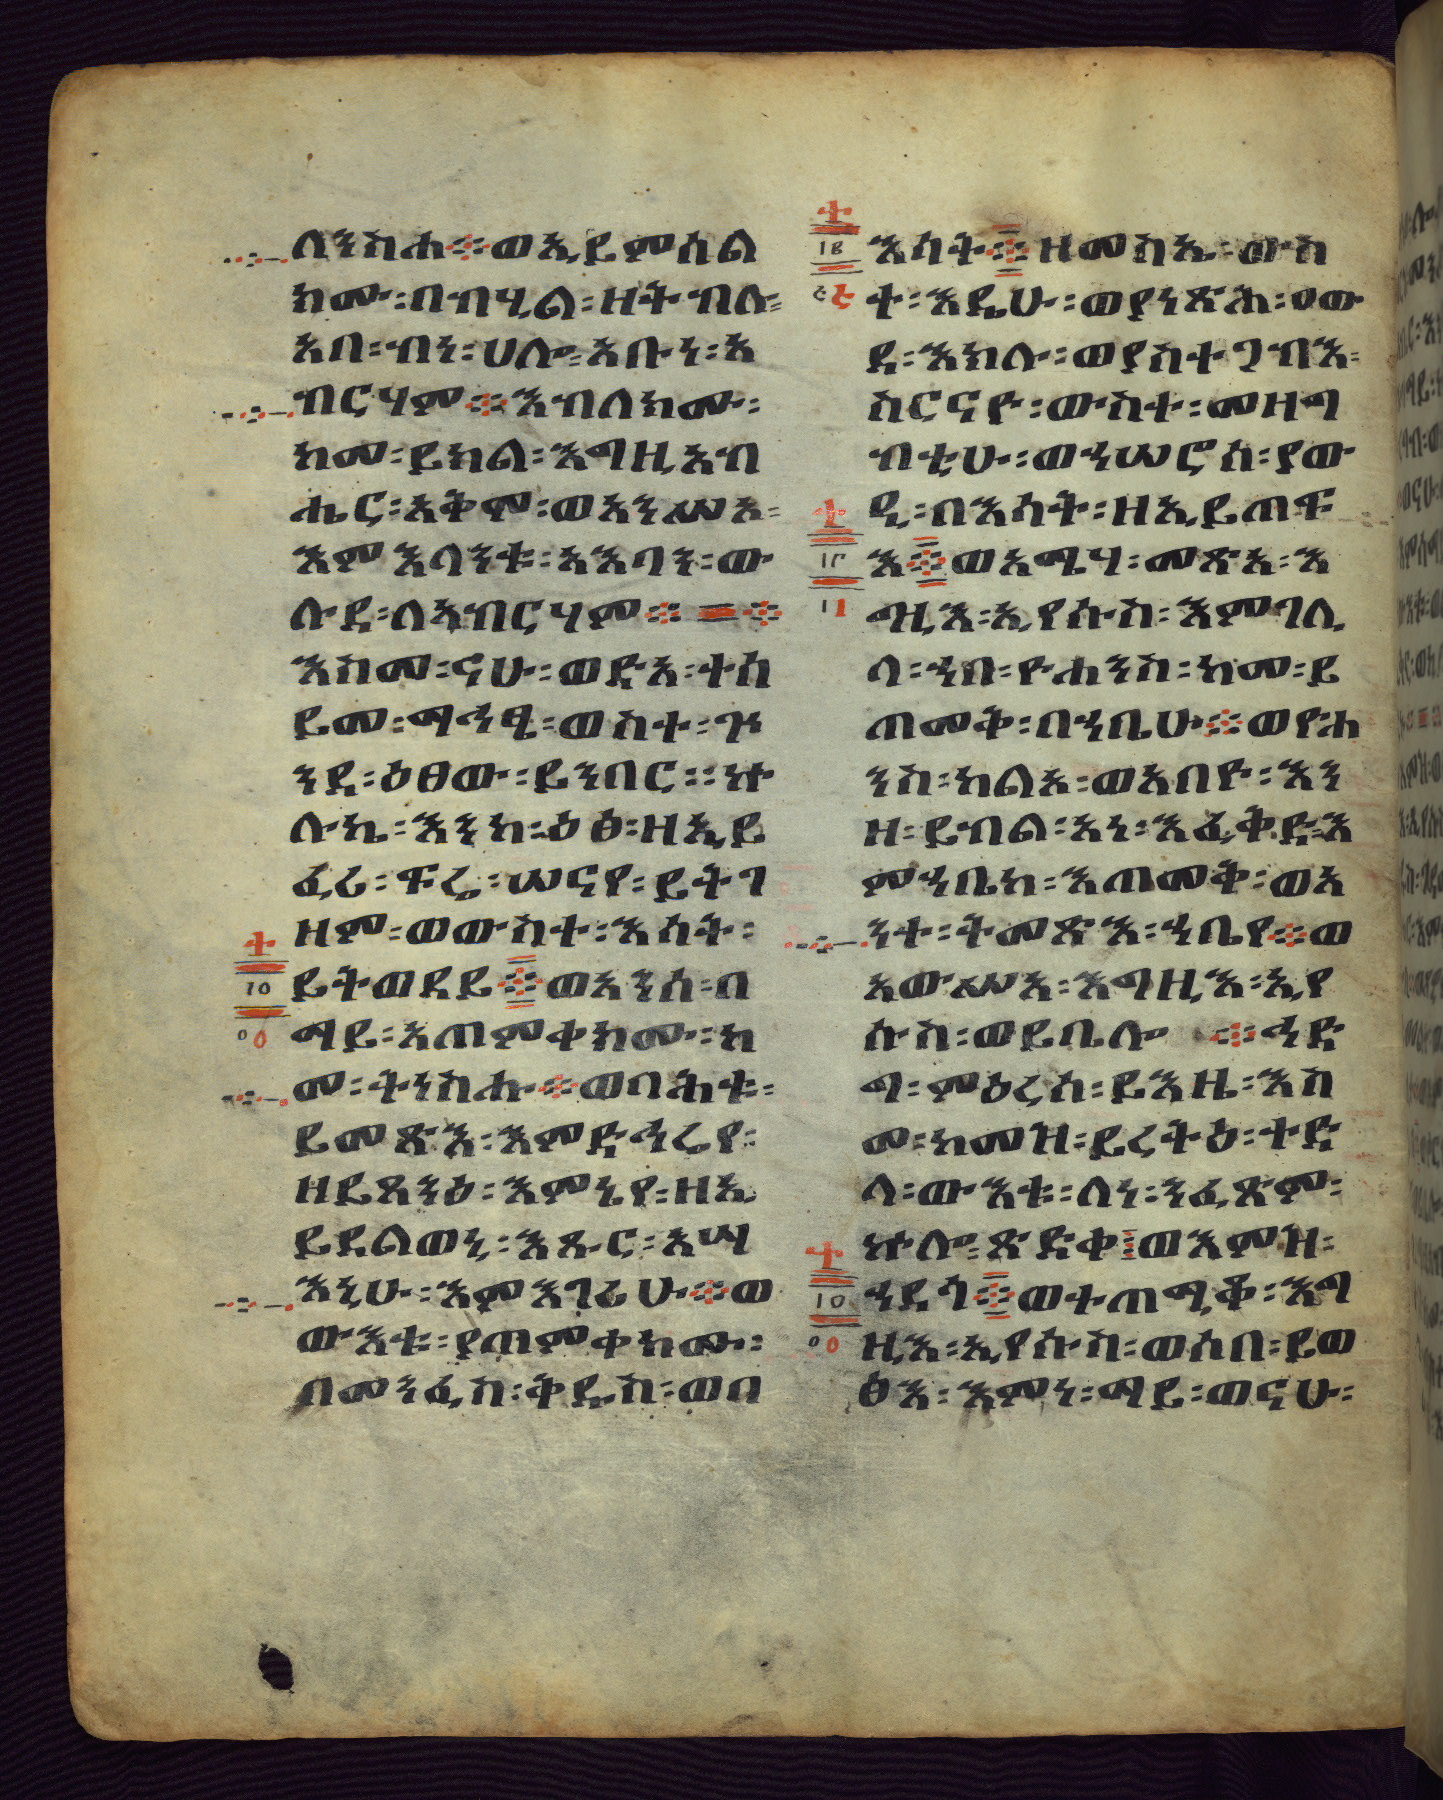 ለንስሐ፨ወኢይምሰል
ክሙ፡በብሂል፡ዘትብሉ፡
አበ፡ብነ፡ሀሎ፡አቡነ፡አ
ብርሃም፨እብለክሙ፡
ከመ፡ይክል፡እግዚአብ
ሔር፡አቅሞ፡ወአንሥአ፡
እምእላንቱ፡አእባን፡ው
ሉደ፡ለአብርሃም፨ ፨
እስመ፡ናሁ፡ወድአ፡ተሰ
ይመ፡ማኅፄ፡ወስተ፡ጕ
ንደ፡ዕፀው፡ይንበር፡፡ኵ
ሉኬ፡እንከ፡ዕፅ፡ዘኢይ
ፈሪ፡ፍሬ፡ሠናየ፡ይትገ
ዘም፡ወውስተ፡እሳት፡
ይትወደይ፨ወአንሰ፡በ
ማይ፡አጠምቀክሙ፡ከ
መ፡ትነስሑ፨ወባሕቱ፡
ይመጽእ፡እምድኅሬየ፡
ዘይጸንዕ፡እምኔየ፡ዘኢ
ይደልወኒ፡እጹር፡አሣ
እኒሁ፡እምእገሪሁ፨ወ
ውእቱ፡ያጠምቀክሙ፡
በመንፈስ፡ቅዱስ፡ወበ
እሳት፨ዘመስኤ፡ውስ
ተ፡እዴሁ፡ወያነጽሕ፡ዐው
ደ፡እክሉ፡ወያስተጋብእ፡
ስርናዮ፡ውስተ፡መዛግ
ብቲሁ፡ወኀሠሮሰ፡ያው
ዒ፡በእሳት፡ዘኢይጠፍ
እ፨ወአሜሃ፡መጽአ፡እ
ግዚእ፡ኢየሱስ፡እምገሊ
ላ፡ኀበ፡ዮሐንስ፡ከመ፡ይ
ጠመቅ፡በኀቤሁ፨ወዮሐ
ንስ፡ከልአ፡ወአበዮ፡እን
ዘ፡ይብል፡አነ፡እፈቅድ፡እ
ምኀቤከ፡እጠመቅ፡ወአ
ንተ፡ትመጽእ፡ኀቤየ፨ወ
አውሥአ፡እግዚእ፡ኢየ
ሱስ፡ወይቤሎ ፨ኅድ
ግ፡ምዕረሰ፡ይእዜ፡እስ
መ፡ከመዝ፡ይረትዕ፡ተድ
ላ፡ውእቱ፡ለነ፡ንፈጽም፡
ኵሎ፡ጽድቀ፡ወእምዝ፡
ኀደጎ፨ወተጠሚቆ፡እግ
ዚእ፡ኢየሱስ፡ወሰበ፡ይወ
ፅእ፡እምነ፡ማይ፡ወናሁ፡